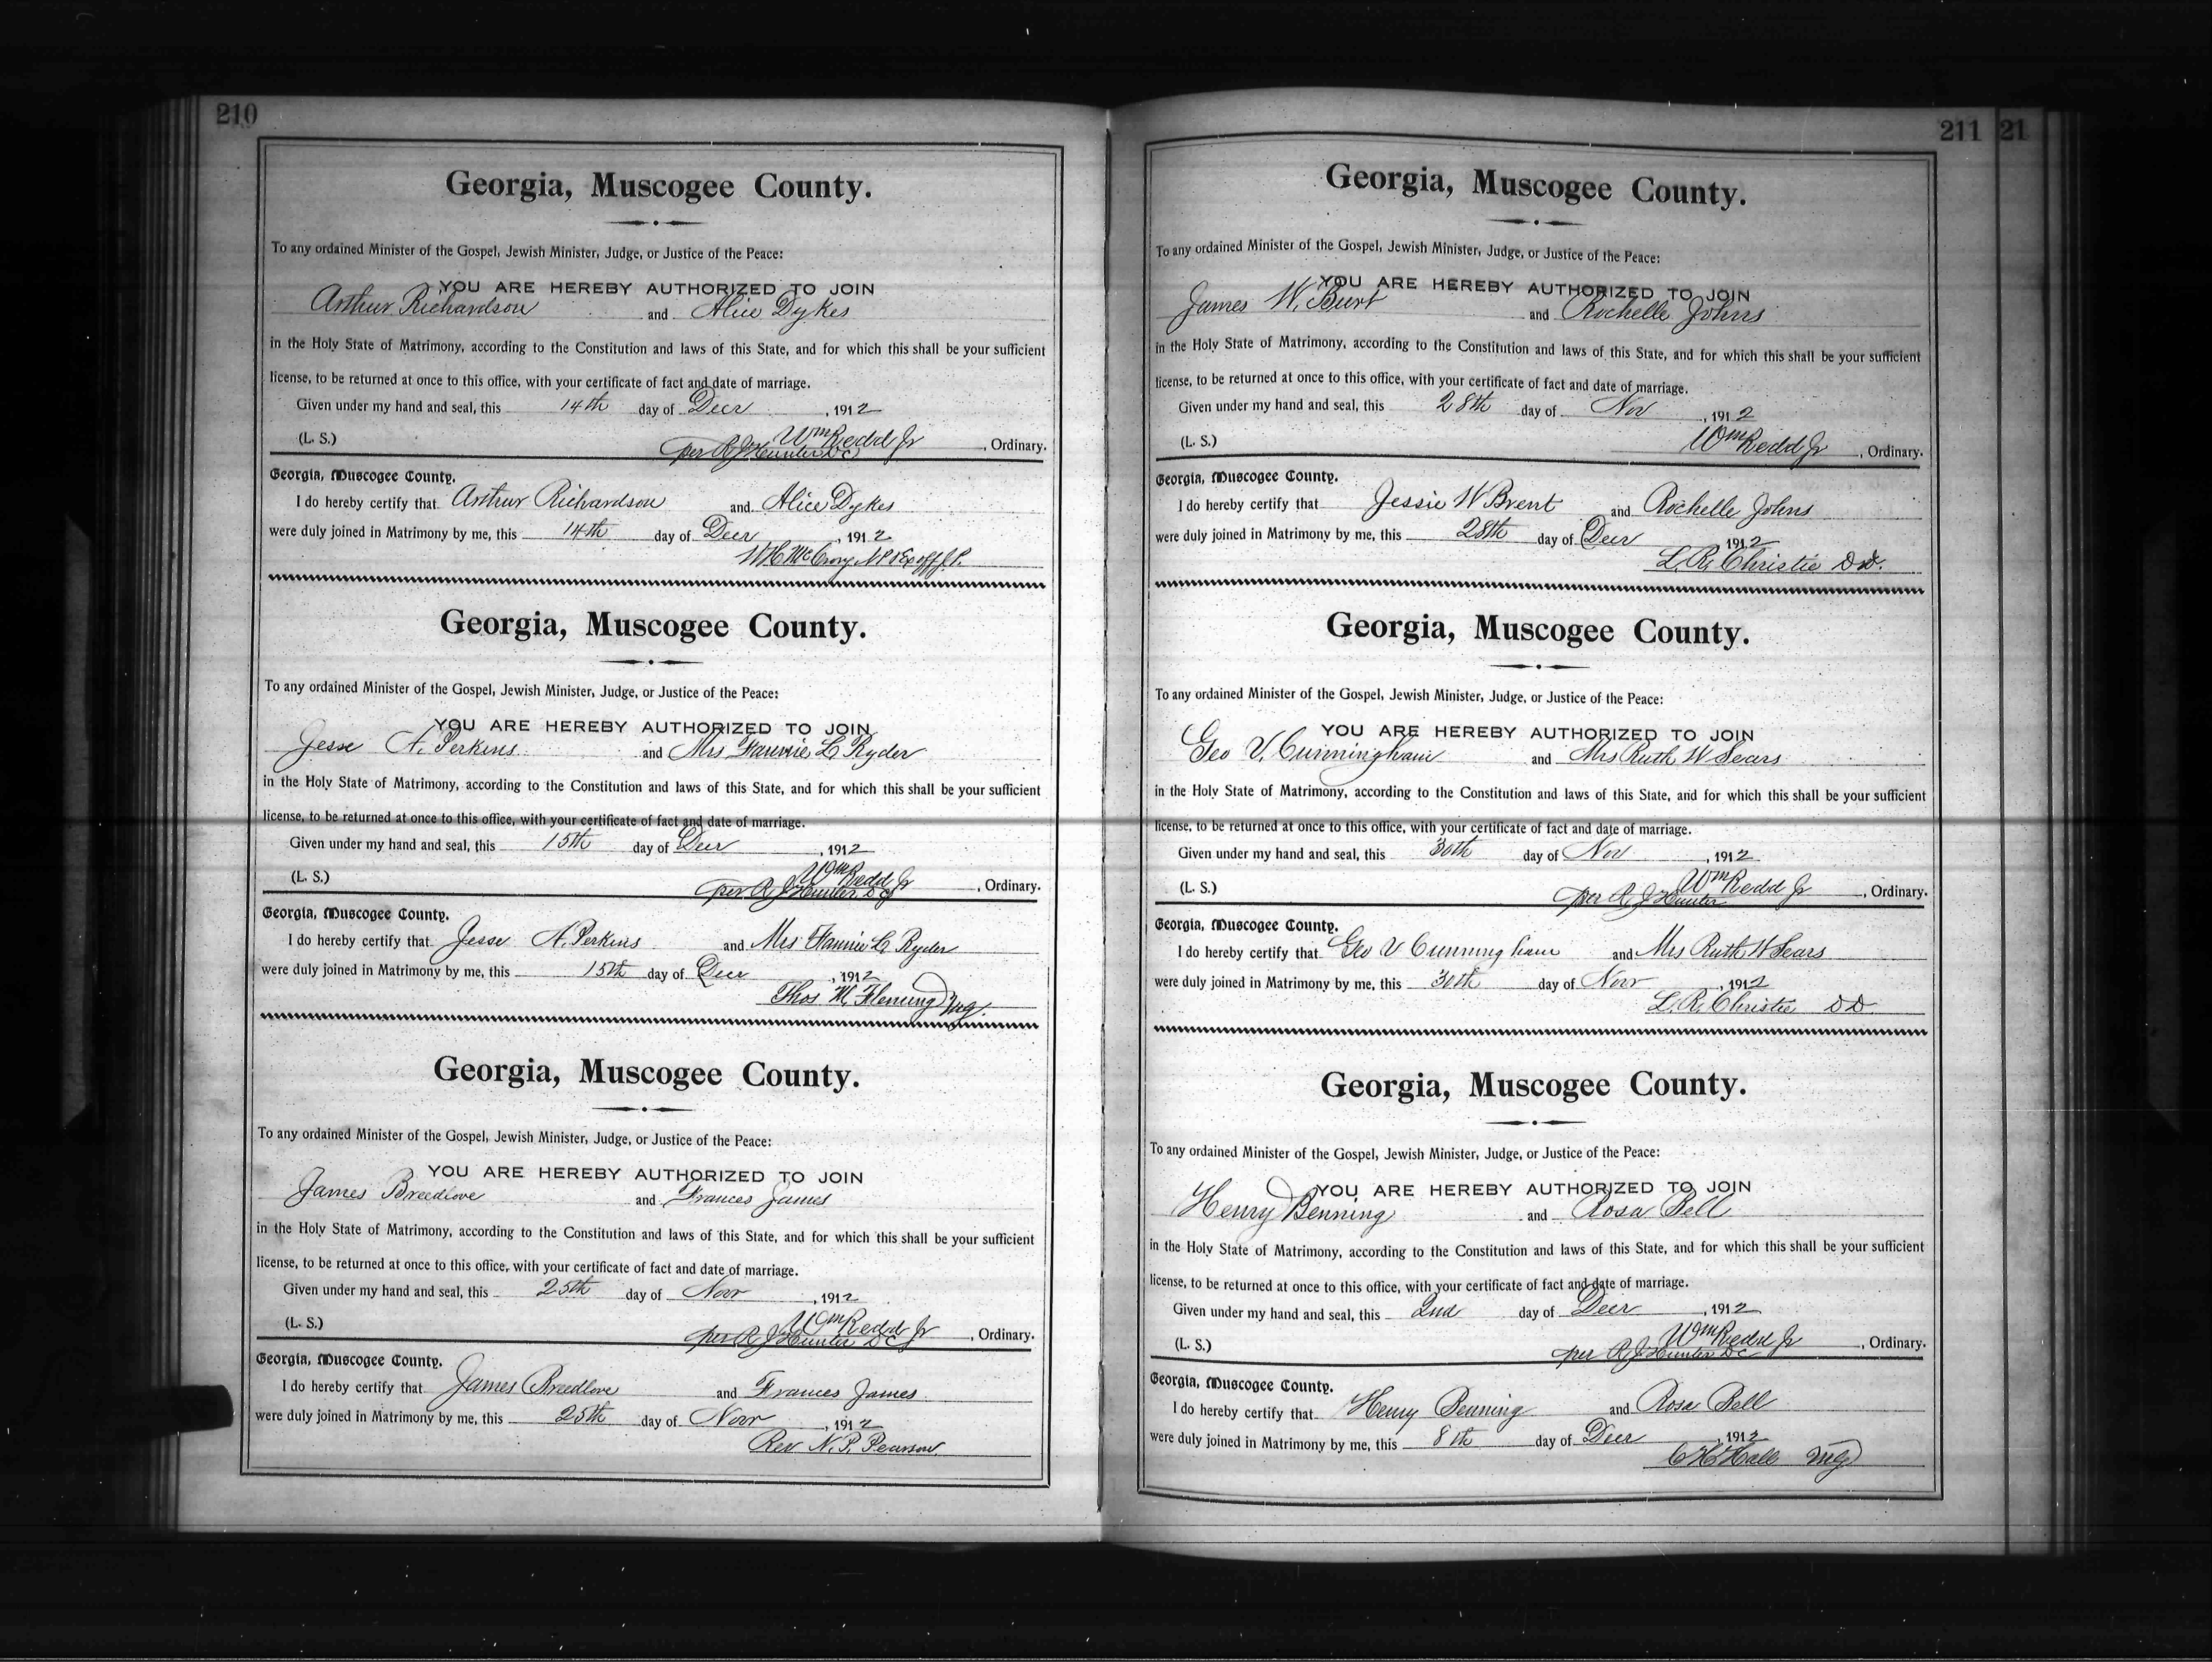 210
Georgia, Muscogee County.
To any ordained Minister of the Gospel, Jewish Minister, Judge, or Justice of the Peace:
YOU ARE HEREBY AUTHORIZED TO JOIN
Arthur Richardson and Alice Dykes
in the Holy State of Matrimony, according to the Constitution and laws of this State, and for which this shall be your sufficient
license, to be returned at once to this office, with your certificate of fact and date of marriage.
Given under my hand and seal, this 14th day of Decr, 1912
Wm Redd Jr
(L. S.) per R J Hunter DC, Ordinary.
Georgia, Muscogee County.
I do hereby certify that Arthur Richardson and Alice Dykes
were duly joined in Matrimony by me, this 14th day of Decr, 1912
W H McCrory N P & Ex off J.P.
Georgia, Muscogee County.
To any ordained Minister of the Gospel, Jewish Minister, Judge, or Justice of the Peace:
YOU ARE HEREBY AUTHORIZED TO JOIN
Jesse A. Perkins and Mrs Fannie L Ryder
in the Holy State of Matrimony, according to the Constitution and laws of this State, and for which this shall be your sufficient
license, to be returned at once to this office, with your certificate of fact and date of marriage.
Given under my hand and seal, this 15th day of Decr, 1912
Wm Redd Jr
(L. S.) per R J Hunter DC, Ordinary.
Georgia, Muscogee County.
I do hereby certify that Jesse A. Perkins and Mrs Fannie L Ryder
were duly joined in Matrimony by me, this 15th day of Decr, 1912
Thos M. Fleming Mg.
Georgia, Muscogee County.
To any ordained Minister of the Gospel, Jewish Minister, Judge, or Justice of the Peace:
YOU ARE HEREBY AUTHORIZED TO JOIN
James Breedlove and Frances James
in the Holy State of Matrimony, according to the Constitution and laws of this State, and for which this shall be your sufficient
license, to be returned at once to this office, with your certificate of fact and date of marriage.
Given under my hand and seal, this 25th day of Novr, 1912
Wm Redd Jr
(L. S.) per R J Hunter DC, Ordinary.
Georgia, Muscogee County.
I do hereby certify that James Breedlove and Frances James
were duly joined in Matrimony by me, this 25th day of Novr, 1912
Rev N. P. Pearson
211 21
Georgia, Muscogee County.
To any ordained Minister of the Gospel, Jewish Minister, Judge, or Justice of the Peace:
YOU ARE HEREBY AUTHORIZED TO JOIN
James W. Burt and Rochelle Johns
in the Holy State of Matrimony, according to the Constitution and laws of this State, and for which this shall be your sufficient
license, to be returned at once to this office, with your certificate of fact and date of marriage.
Given under my hand and seal, this 28th day of Nov, 1912
(L. S.) Wm Redd Jr, Ordinary.
Georgia, Muscogee County.
I do hereby certify that Jessie W Brent and Rochelle Johns
were duly joined in Matrimony by me, this 28th day of Decr, 1912
L. R. Christie DD.
Georgia, Muscogee County.
To any ordained Minister of the Gospel, Jewish Minister, Judge, or Justice of the Peace:
YOU ARE HEREBY AUTHORIZED TO JOIN
Geo V. Cunningham and Mrs Ruth W Sears
in the Holy State of Matrimony, according to the Constitution and laws of this State, and for which this shall be your sufficient
license, to be returned at once to this office, with your certificate of fact and date of marriage.
Given under my hand and seal, this 30th day of Nov, 1912
Wm Redd Jr
(L. S.) per R J Hunter, Ordinary.
Georgia, Muscogee County.
I do hereby certify that Geo V Cunningham and Mrs Ruth W Sears
were duly joined in Matrimony by me, this 30th day of Novr, 1912
L. R. Christie DD
Georgia, Muscogee County.
To any ordained Minister of the Gospel, Jewish Minister, Judge, or Justice of the Peace:
YOU ARE HEREBY AUTHORIZED TO JOIN
Henry Benning and Rosa Bell
in the Holy State of Matrimony, according to the Constitution and laws of this State, and for which this shall be your sufficient
license, to be returned at once to this office, with your certificate of fact and date of marriage.
Given under my hand and seal, this 2nd day of Decr, 1912
Wm Redd Jr
(L. S.) per R J Hunter DC, Ordinary.
Georgia, Muscogee County.
I do hereby certify that Henry Benning and Rosa Bell
were duly joined in Matrimony by me, this 8th day of Decr, 1912
C H Hall Mg